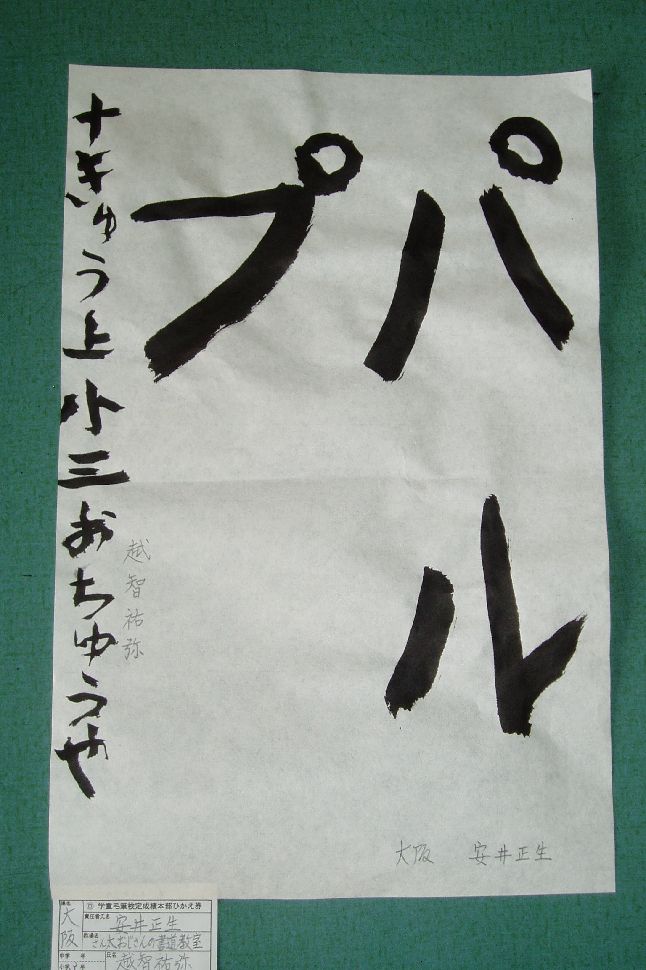 パル
プ
十きゅう上 小三 おちゆうや
越智祐弥
大阪 安井正生
学童毛筆検定成績本部ひかえ券
大阪
責任者氏名 安井正生
さん太おじさんの書道教室
中学 年
氏名 越智祐弥